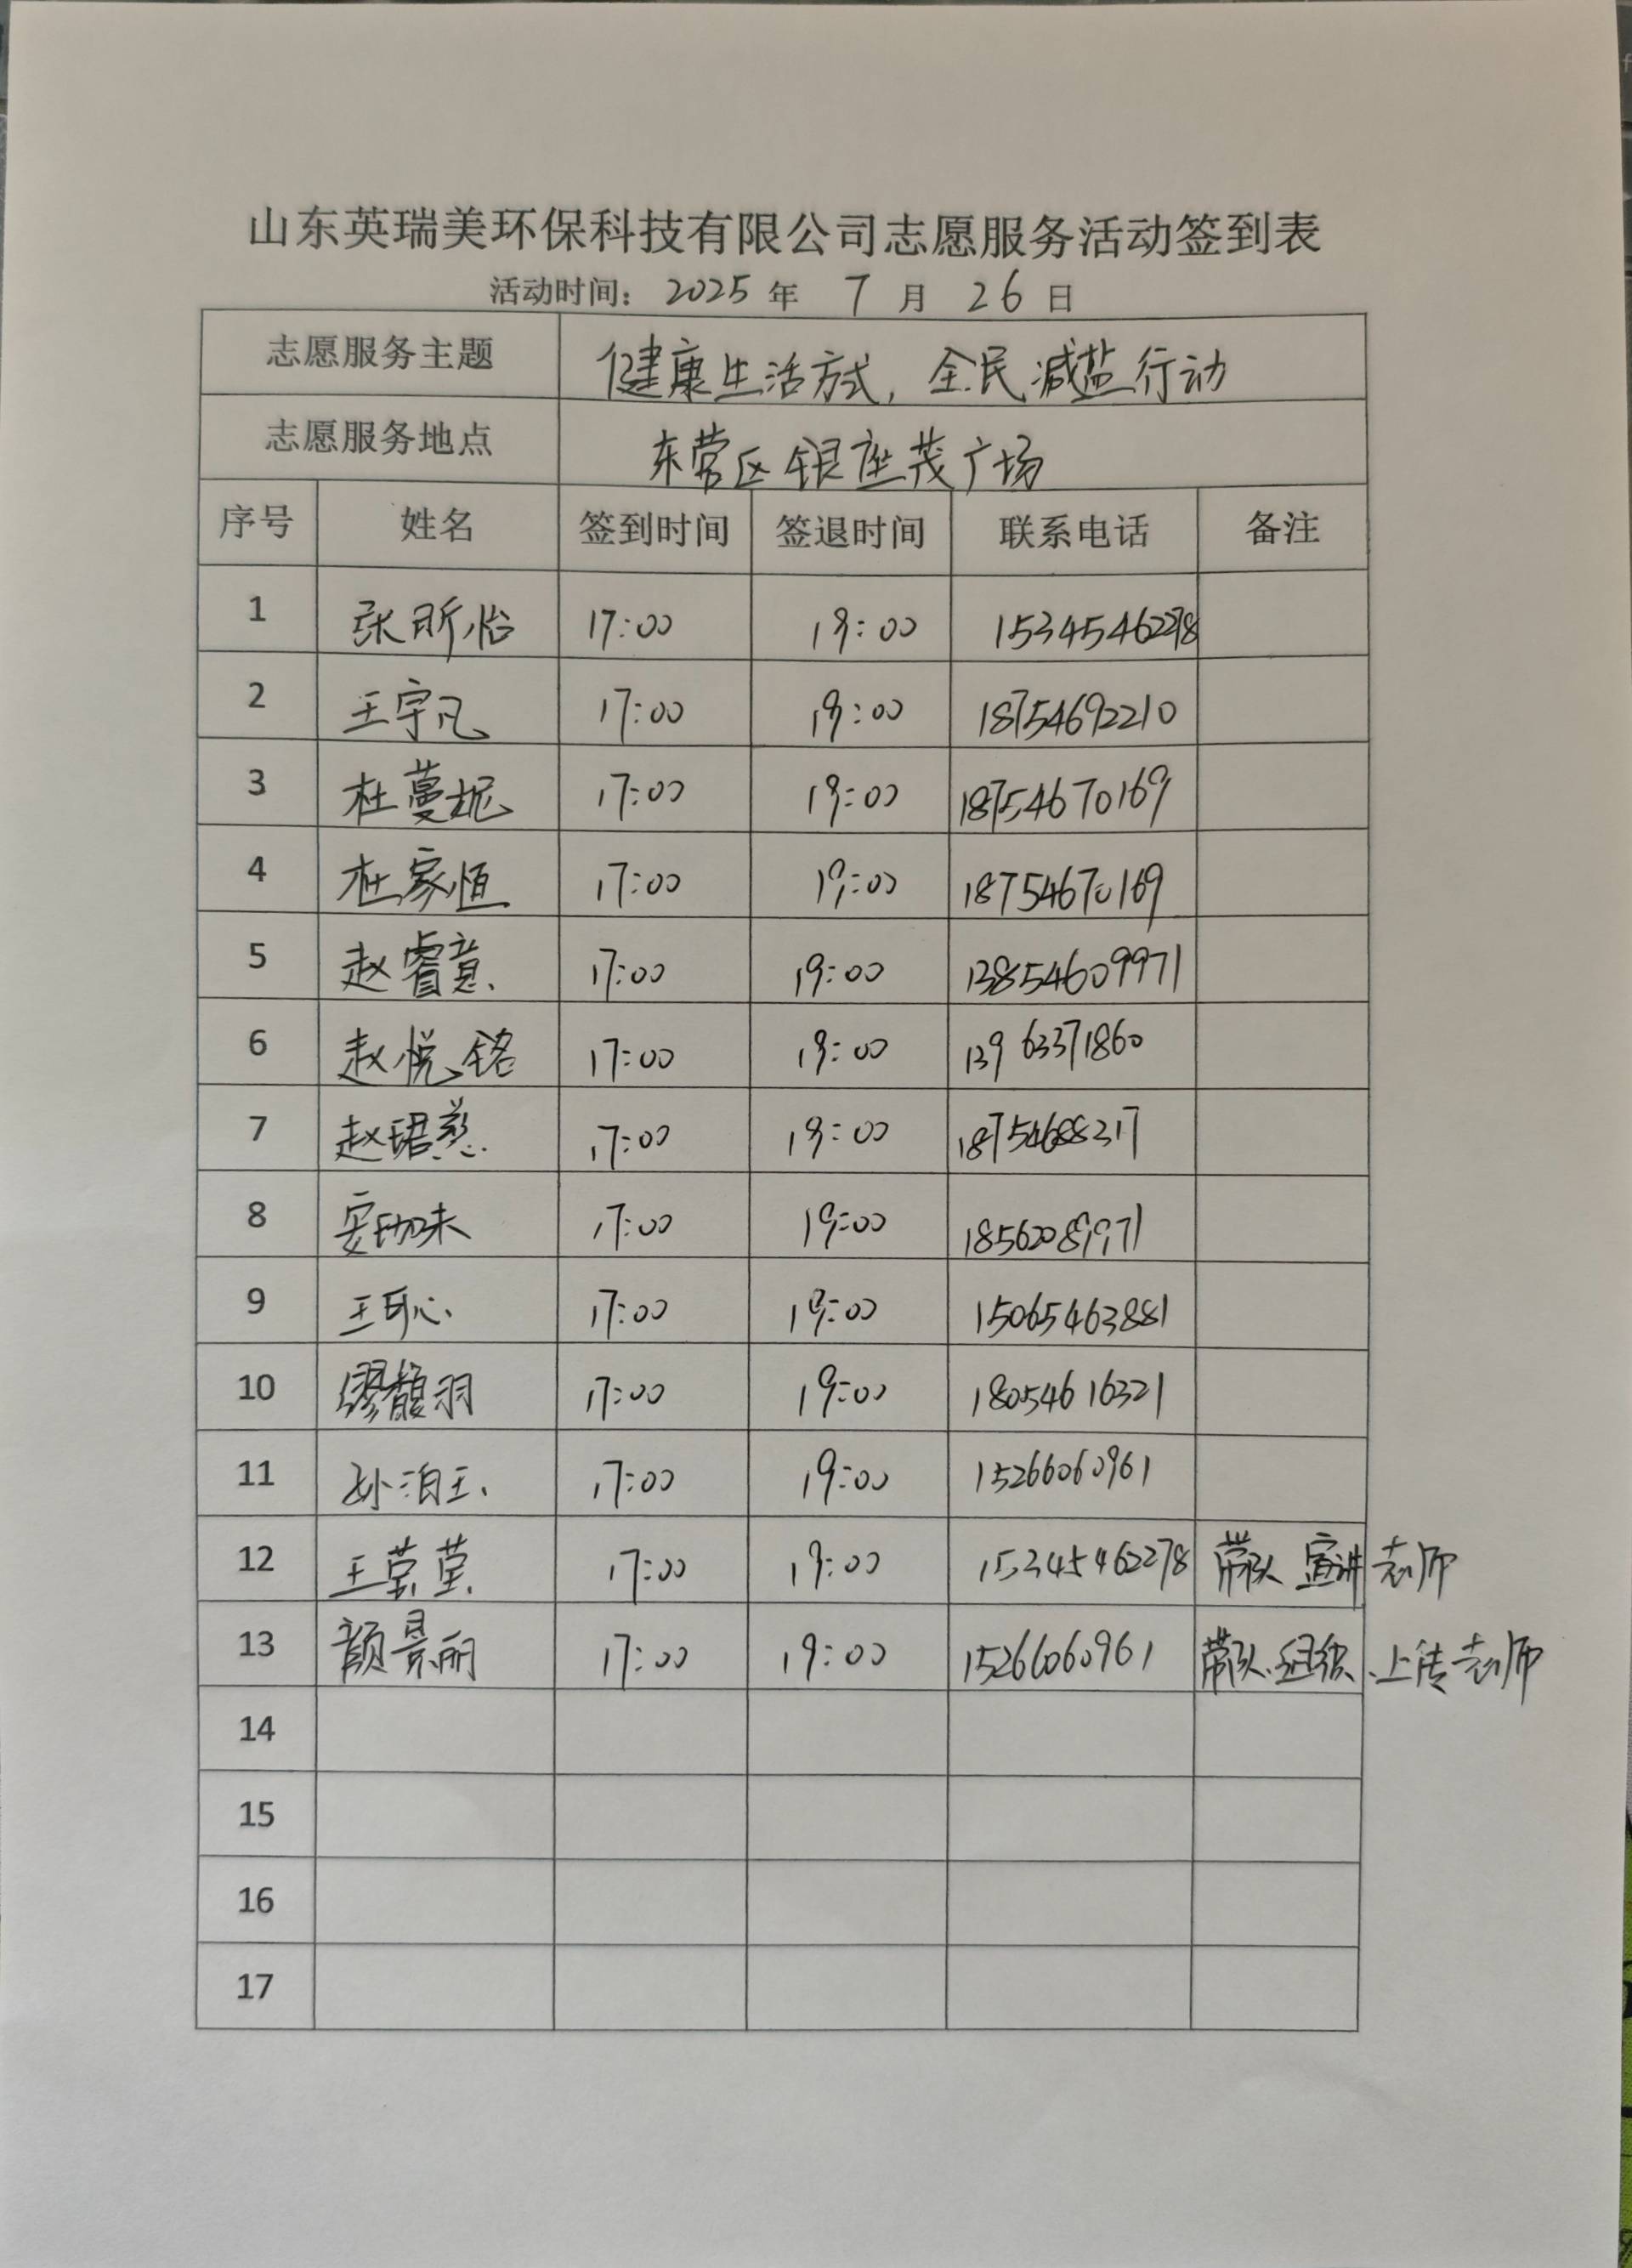 山东英瑞美环保科技有限公司志愿服务活动签到表
活动时间： 2025 年 7 月 26 日
志愿服务主题 健康生活方式，全民减盐行动
志愿服务地点 东营区银座茂广场
序号 姓名 签到时间 签退时间 联系电话 备注
1 张昕怡 17:00 19:00 15345462278
2 王宇凡 17:00 19:00 18754692210
3 杜蔓妮 17:00 19:00 18754670169
4 杜家恒 17:00 19:00 18754670169
5 赵睿意 17:00 19:00 13854609971
6 赵悦铭 17:00 19:00 13963371860
7 赵珺慈 17:00 19:00 18754688317
8 17:00 19:00 18562089971
9 17:00 19:00 15065463881
10 缪馥羽 17:00 19:00 18054616321
11 孙泊玉 17:00 19:00 15266060961
12 王莹莹 17:00 19:00 15345462278 带队宣讲老师
13 颜景丽 17:00 19:00 15266060961 带队、组织、上传老师
14
15
16
17